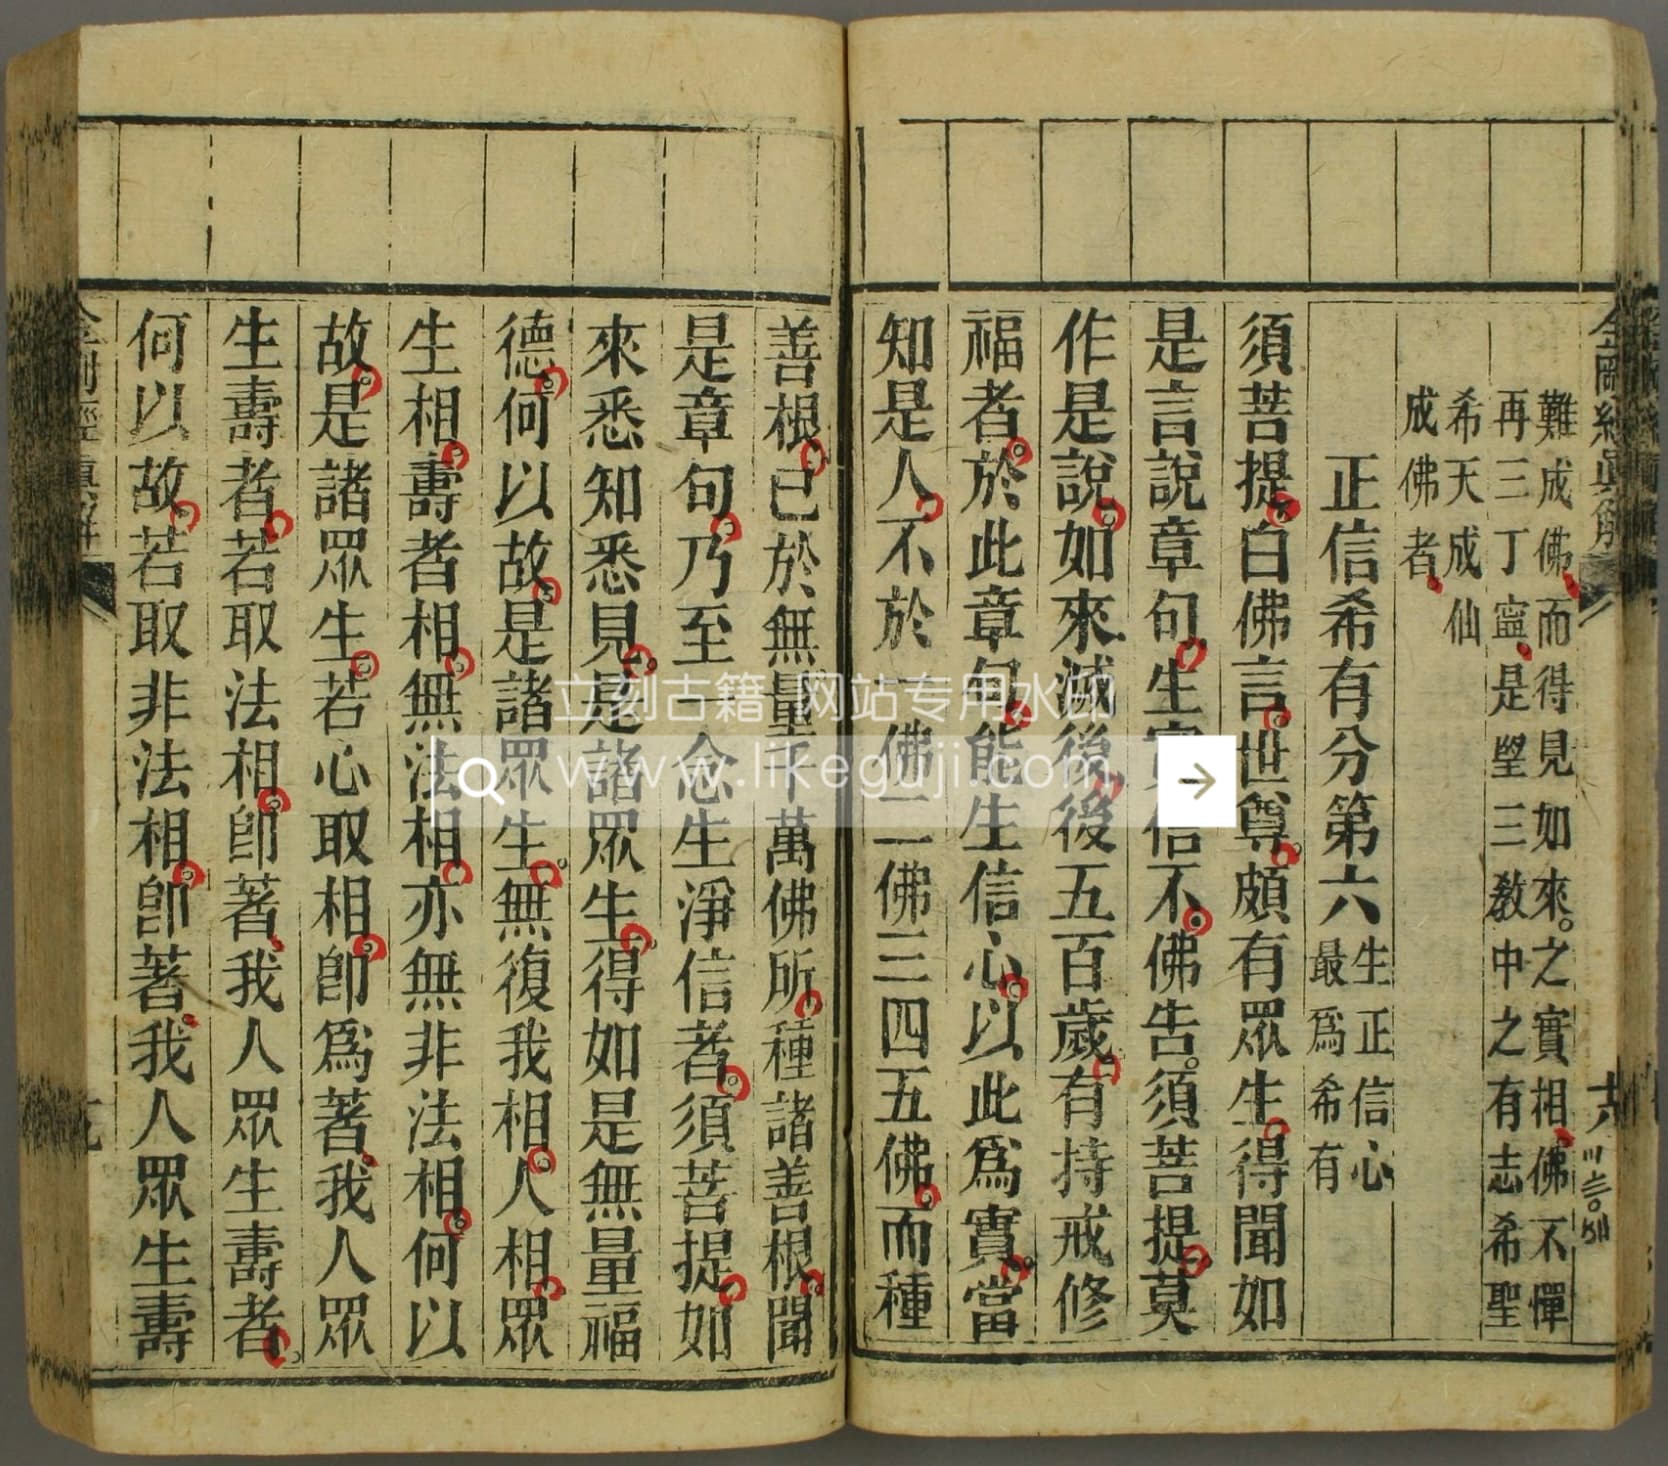 金剛經眞解
十六
難成佛而得見如來之實相佛不憚
再三丁寧是望三教中之有志希聖
希天成仙
成佛者
正信希有分第六生正信心最爲希有
須菩提白佛言世尊頗有眾生得聞如
是言說章句生實信不佛告須菩提莫
作是說如來滅後後五百歲有持戒修
福者於此章句能生信心以此爲實當
知是人不於一佛二佛三四五佛而種
善根已於無量千萬佛所種諸善根聞
是章句乃至一念生淨信者須菩提如
來悉知悉見是諸眾生得如是無量福
德何以故是諸眾生無復我相人相眾
生相壽者相無法相亦無非法相何以
故是諸眾生若心取相卽爲著我人眾
生壽者若取法相卽著我人眾生壽者
何以故若取非法相卽著我人眾生壽
立刻古籍 网站专用水印
www.likeguji.com